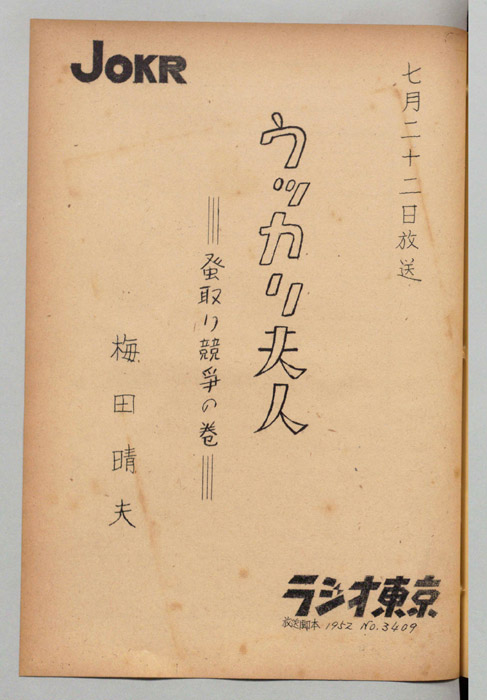 JOKR
七月二十二日放送
ウッカリ夫人
蚤取り競爭の巻
梅田晴夫
ラジオ東京
放送脚本 1952 No.3409